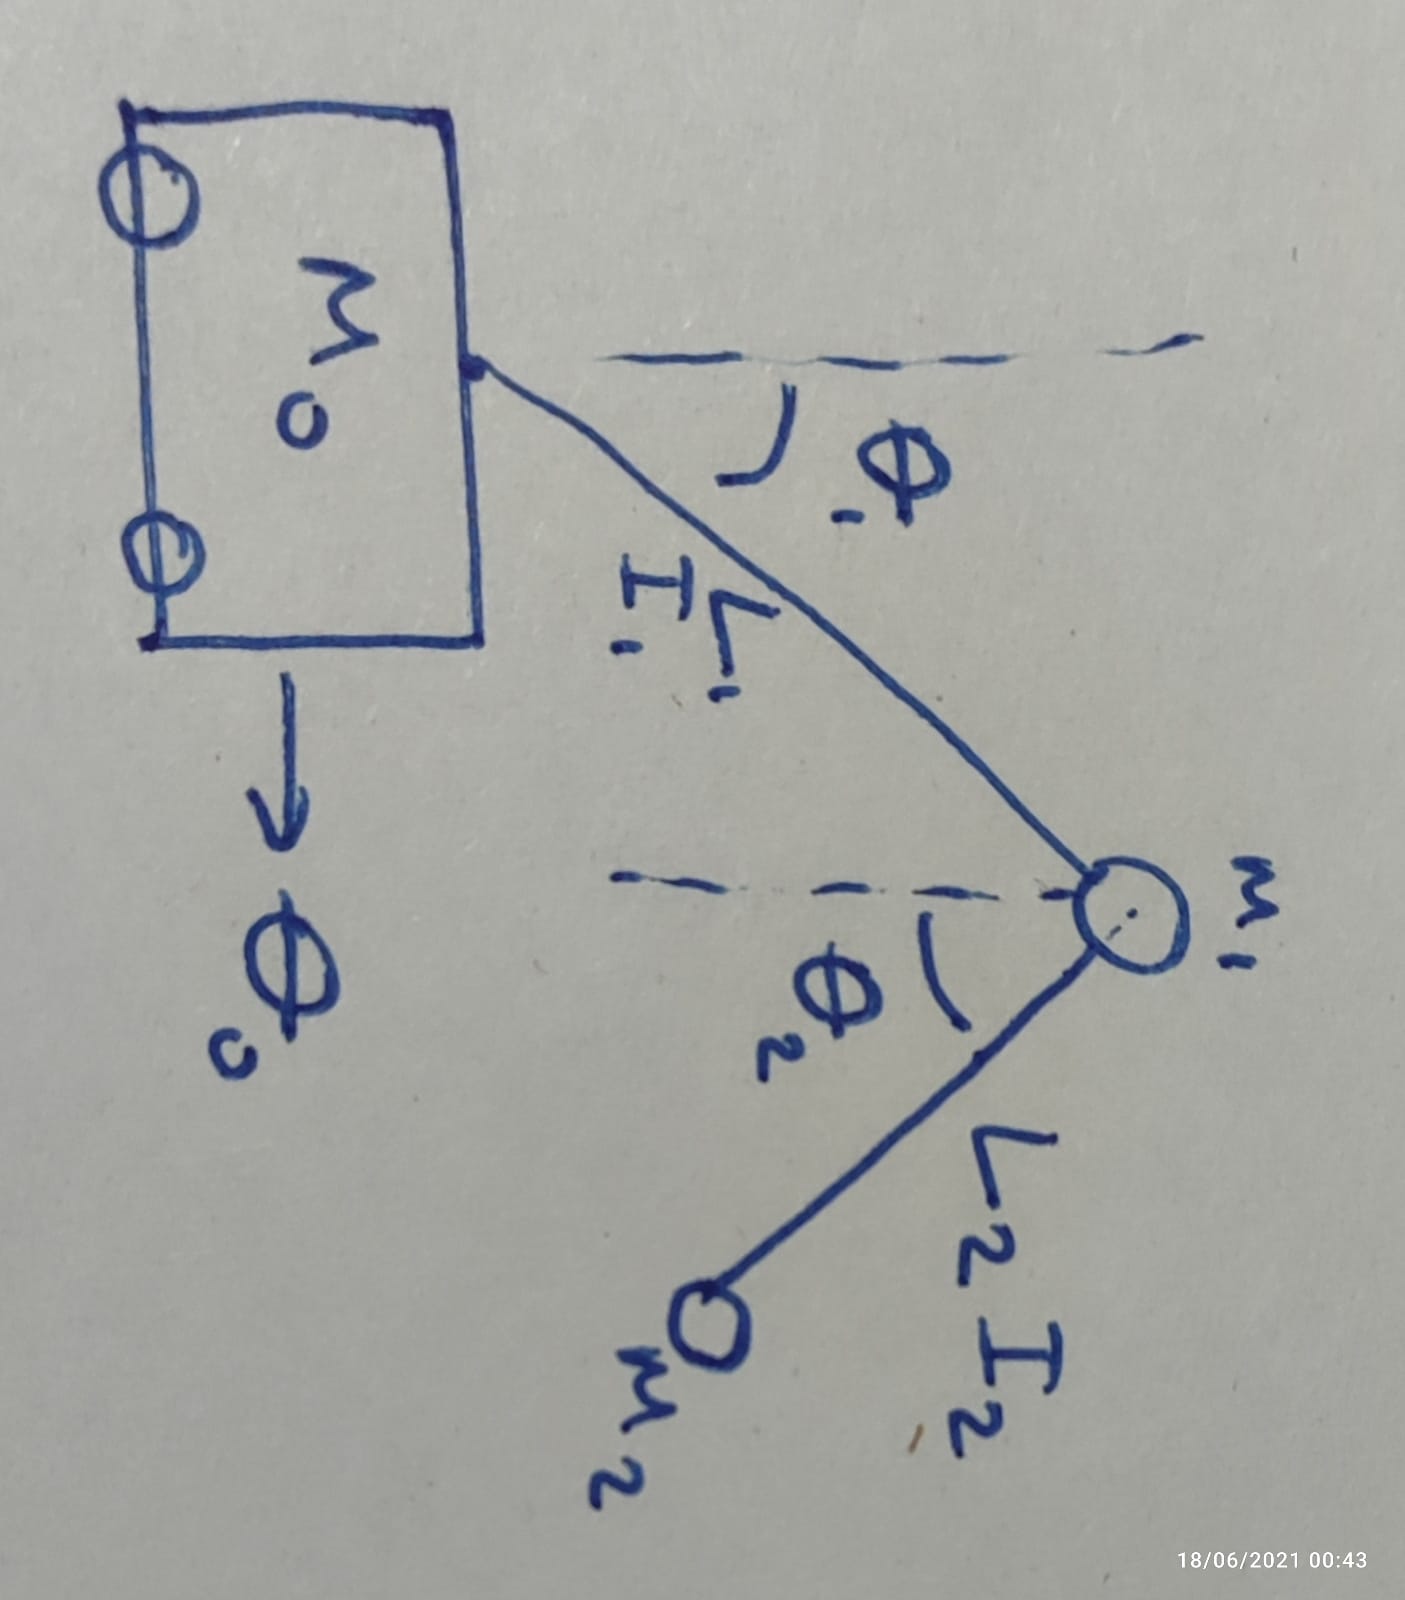 18/06/2021 00:43
M1
θ1
L2 I2
θ2
L1
I1
M2
M0
θ0